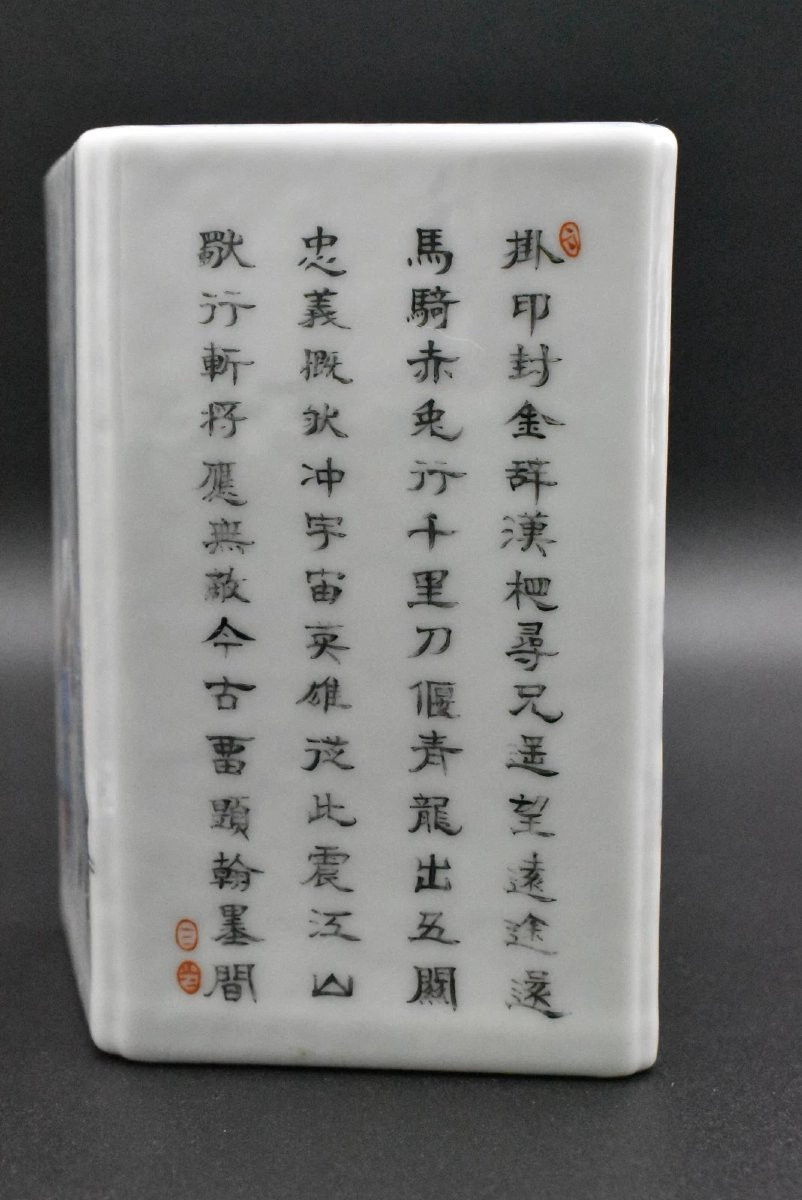 掛印封金辞漢相尋兄遥望遠途還
馬騎赤兔行千里刀偃青龍出五關
忠義慨然冲宇宙英雄從此震江山
獨行斬將應無敵今古留題翰墨間